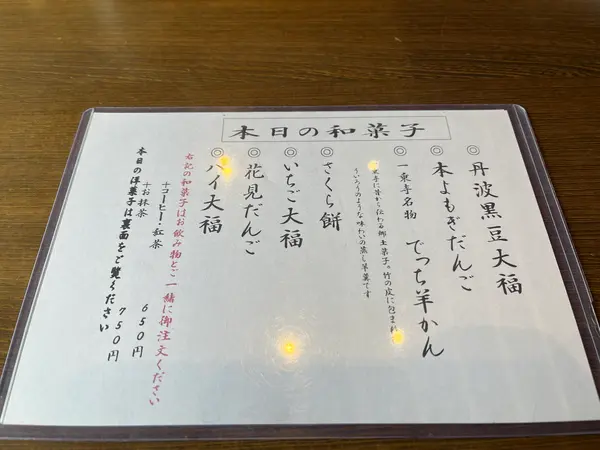 本日の和菓子
◎丹波黒豆大福
◎本よもぎだんご
◎一乗寺名物 でっち羊かん
乗寺に昔から伝わる郷土菓子。竹の皮に包まれ
ういろうのような味わいの蒸し羊羹です
◎さくら餅
◎いちご大福
◎花見だんご
◎パイ大福
右記の和菓子はお飲み物とご一緒に御注文ください
+コーヒー・紅茶 650円
+お抹茶 750円
本日の洋菓子は裏面をご覧ください